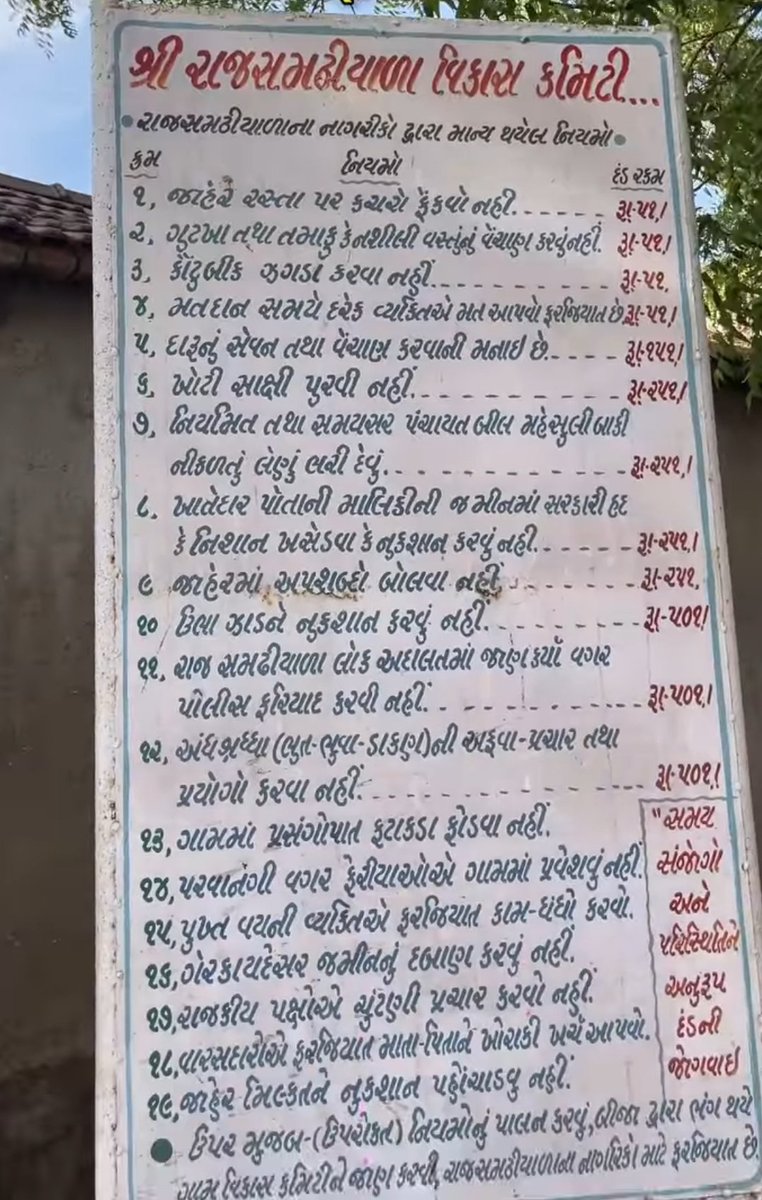 શ્રી રાજસમઢીયાળા વિકાસ કમિટી...
• રાજસમઢીયાળાના નાગરીકો દ્વારા માન્ય થયેલ નિયમો •
ક્રમ નિયમો દંડ રકમ
૧, જાહેર રસ્તા પર કચરો ફેંકવો નહીં. - - - - - - રૂા-૫૧/
૨, ગુટખા તથા તમાકુ કે નશીલી વસ્તુંનું વેંચાણ કરવું નહીં. રૂા-૫૧/
૩, કૌંટુબીક ઝગડા કરવા નહીં. - - - - - - - - - - રૂા-૫૧.
૪, મતદાન સમયે દરેક વ્યકિતએ મત આપવો ફરજિયાત છે. રૂા-૫૧/
૫, દારૂનું સેવન તથા વેંચાણ કરવાની મનાઇ છે. - - - - રૂા-૧૫૧/
૬, ખોટી સાક્ષી પુરવી નહીં. - - - - - - - - - - - રૂા-૨૫૧/
૭, નિયમિત તથા સમયસર પંચાયત બીલ મહેસુલી બાકી
નીકળતું લેણું ભરી દેવું. - - - - - - - - - - - રૂા-૨૫૧/
૮, ખાતેદાર પોતાની માલિકીની જમીનમાં સરકારી હદ
કે નિશાન ખસેડવા કે નુકશાન કરવું નહી. - - - - - - રૂા-૨૫૧/
૯ જાહેરમાં અપશબ્દો બોલવા નહીં - - - - - - - - રૂા-૨૫૧.
૧૦ ઉભા ઝાડને નુકશાન કરવું નહીં. - - - - - - - - રૂા-૫૦૧/
૧૧, રાજ સમઢીયાળા લોક અદાલતમાં જાણ કર્યા વગર
પોલીસ ફરિયાદ કરવી નહીં. - - - - - - - - - - રૂા-૫૦૧/
૧૨, અંધશ્રધ્ધા (ભુત-ભુવા-ડાકણ)ની અફવા-પ્રચાર તથા
પ્રયોગો કરવા નહીં. - - - - - - - - - - - - - રૂા-૫૦૧/
૧૩, ગામમાં પ્રસંગોપાત ફટાકડા ફોડવા નહીં.
૧૪, પરવાનગી વગર ફેરીયાઓએ ગામમાં પ્રવેશવું નહીં.
૧૫, પુખ્ત વયની વ્યકિતએ ફરજિયાત કામ-ધંધો કરવો.
૧૬, ગેરકાયદેસર જમીનનું દબાણ કરવું નહીં.
૧૭, રાજકીય પક્ષોએ ચુંટણી પ્રચાર કરવો નહીં.
૧૮, વારસદારોએ ફરજિયાત માતા-પિતાને ખોરાકી ખર્ચ આપવો.
૧૯, જાહેર મિલ્કતને નુકશાન પહોંચાડવુ નહીં.
"સમય
સંજોગો
અને
પરિસ્થિતિને
અનુરૂપ
દંડની
જોગવાઇ
● ઉપર મુજબ-(ઉપરોકત) નિયમોનું પાલન કરવું, બીજા દ્વારા ભંગ થયે
ગામ વિકાસ કમિટીને જાણ કરવી, રાજસમઢીયાળાના નાગરિકો માટે ફરજિયાત છે.